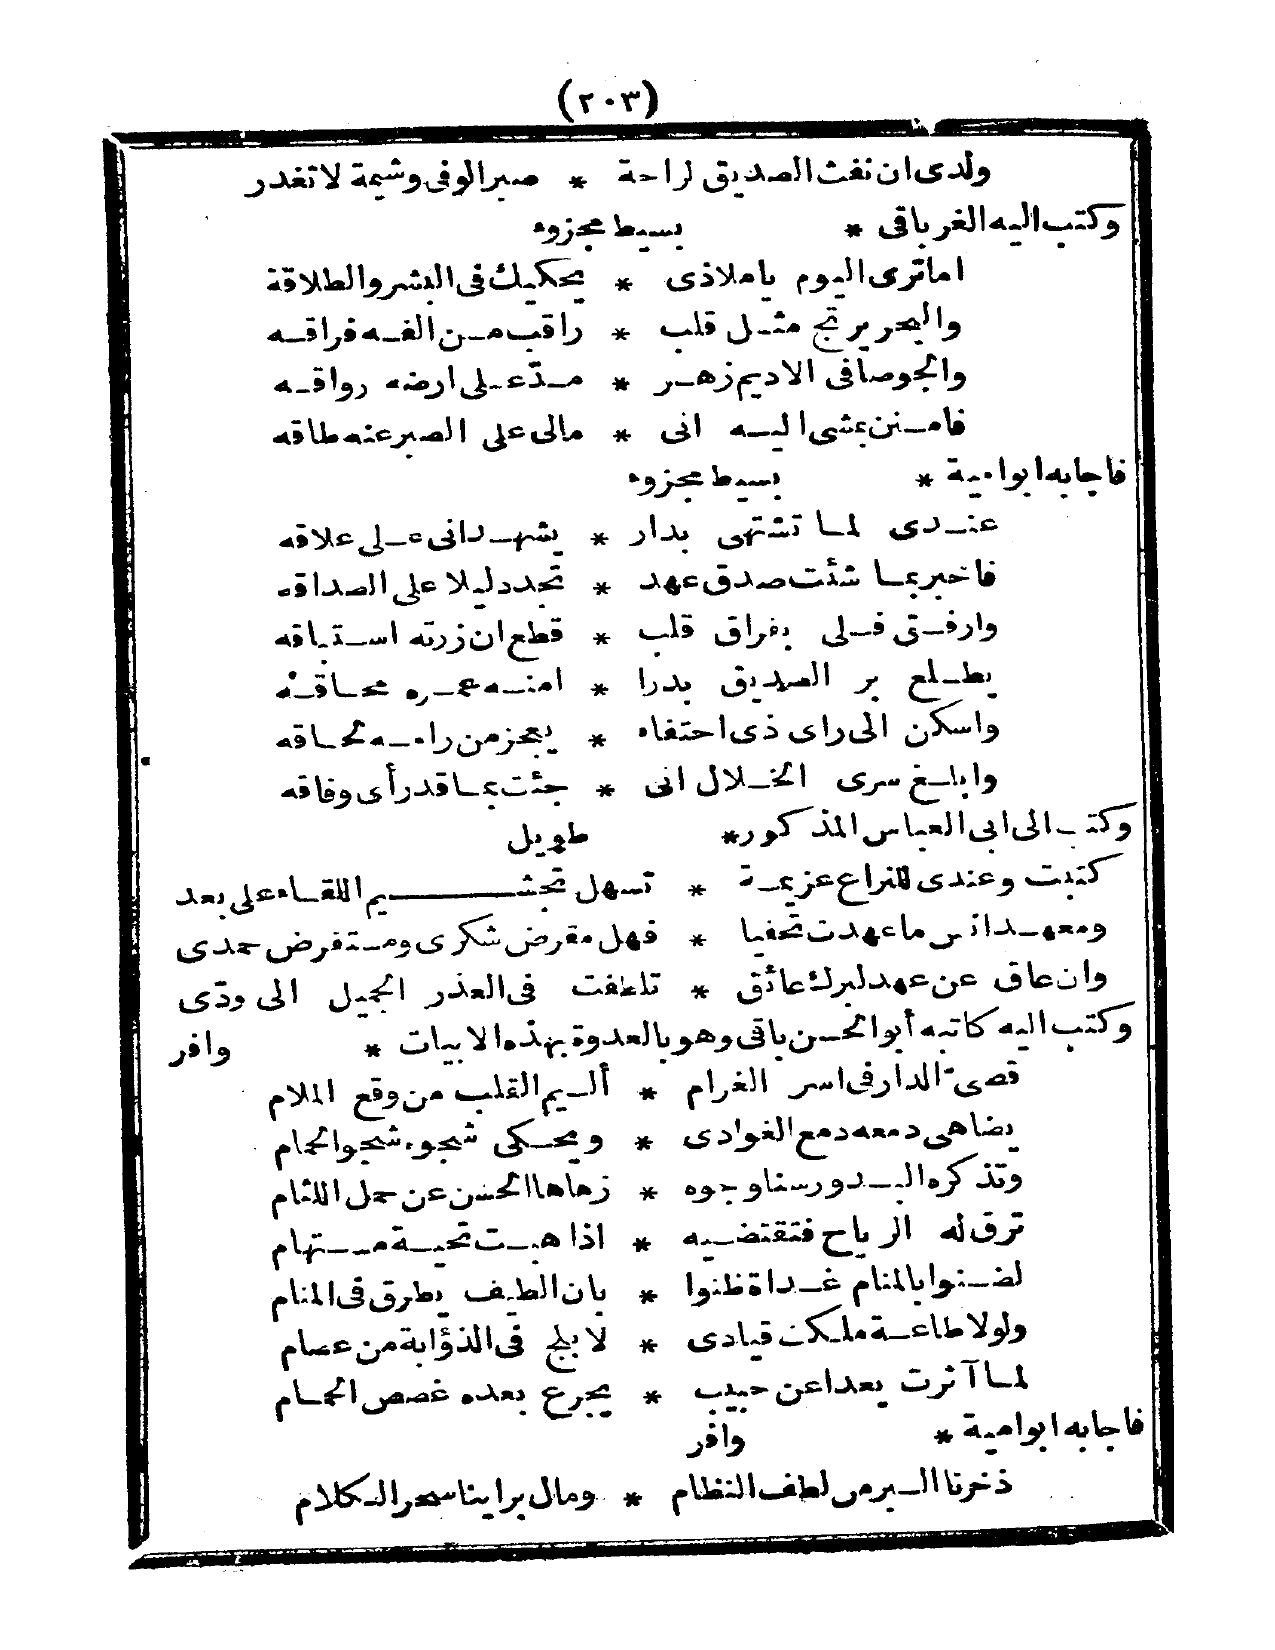 (٢٠٣)
ولدى ان نفث الصديق لراحة * صبر الوفى وشيمة لا تغدر
وكتب اليه الغر باقى * بسيط مجزوء
اما ترى اليوم يا ملاذى * يحكيك فى البشر والطلاقة
والبحر يرتج مثل قلب * راقب من الفه فراقه
والجو صافى الاديم زهر * مدّ على ارضه رواقه
فامنن بمشى اليه انى * مالى على الصبر عنه طاقه
فاجابه ابو امية * بسيط مجزوء
عندى لما تشتهى بدار * يشهد انى على علاقه
فاخبر بما شئت صدق عهد * تجد دليلا على الصداقه
وارفق فلى بفراق قلب * قطع ان زرته استياقه
يطلع بر الصديق بدرا * امنه عمره محاقه
واسكن الى راى ذى احتفاء * يعجز من رامه لحاقه
وابلغ سرى الخلال انى * جئت بما قد رأى وفاقه
وكتب الى ابى العباس المذكور * طويل
كتبت وعندى للنزاع عزيمة * تسهل تجشيم اللقاء على بعد
ومعهد انس ما عهدت تحفيا * فهل مقرض شكرى ومستفرض حمدى
وان عاق عن عهد لبرك عائق * تلطفت فى العذر الجميل الى ودّى
وكتب اليه كاتبه أبو الحسن باقى وهو بالعدوة بهذه الابيات * وافر
قصى الدار فى اسر الغرام * أليم القلب من وقع الملام
يضاهى دمعه دمع الغوادى * ويحكى شجوه شجو الحمام
وتذكره البدور سنا وجوه * زهاها الحسن عن حمل اللثام
ترق له الرياح فتقتضيه * اذا هبت تحية مستهام
لضنوا بالمنام غداة ظنوا * بان الطيف يطرق فى المنام
ولولا طاعة ملكت قيادى * لابلج فى الذؤابة من عصام
لما آثرت بعدا عن حبيب * يجرع بعده غصص الحمام
فاجابه ابو امية * وافر
ذخرنا البر من لطف النظام * ومال برا ينا سحر الكلام